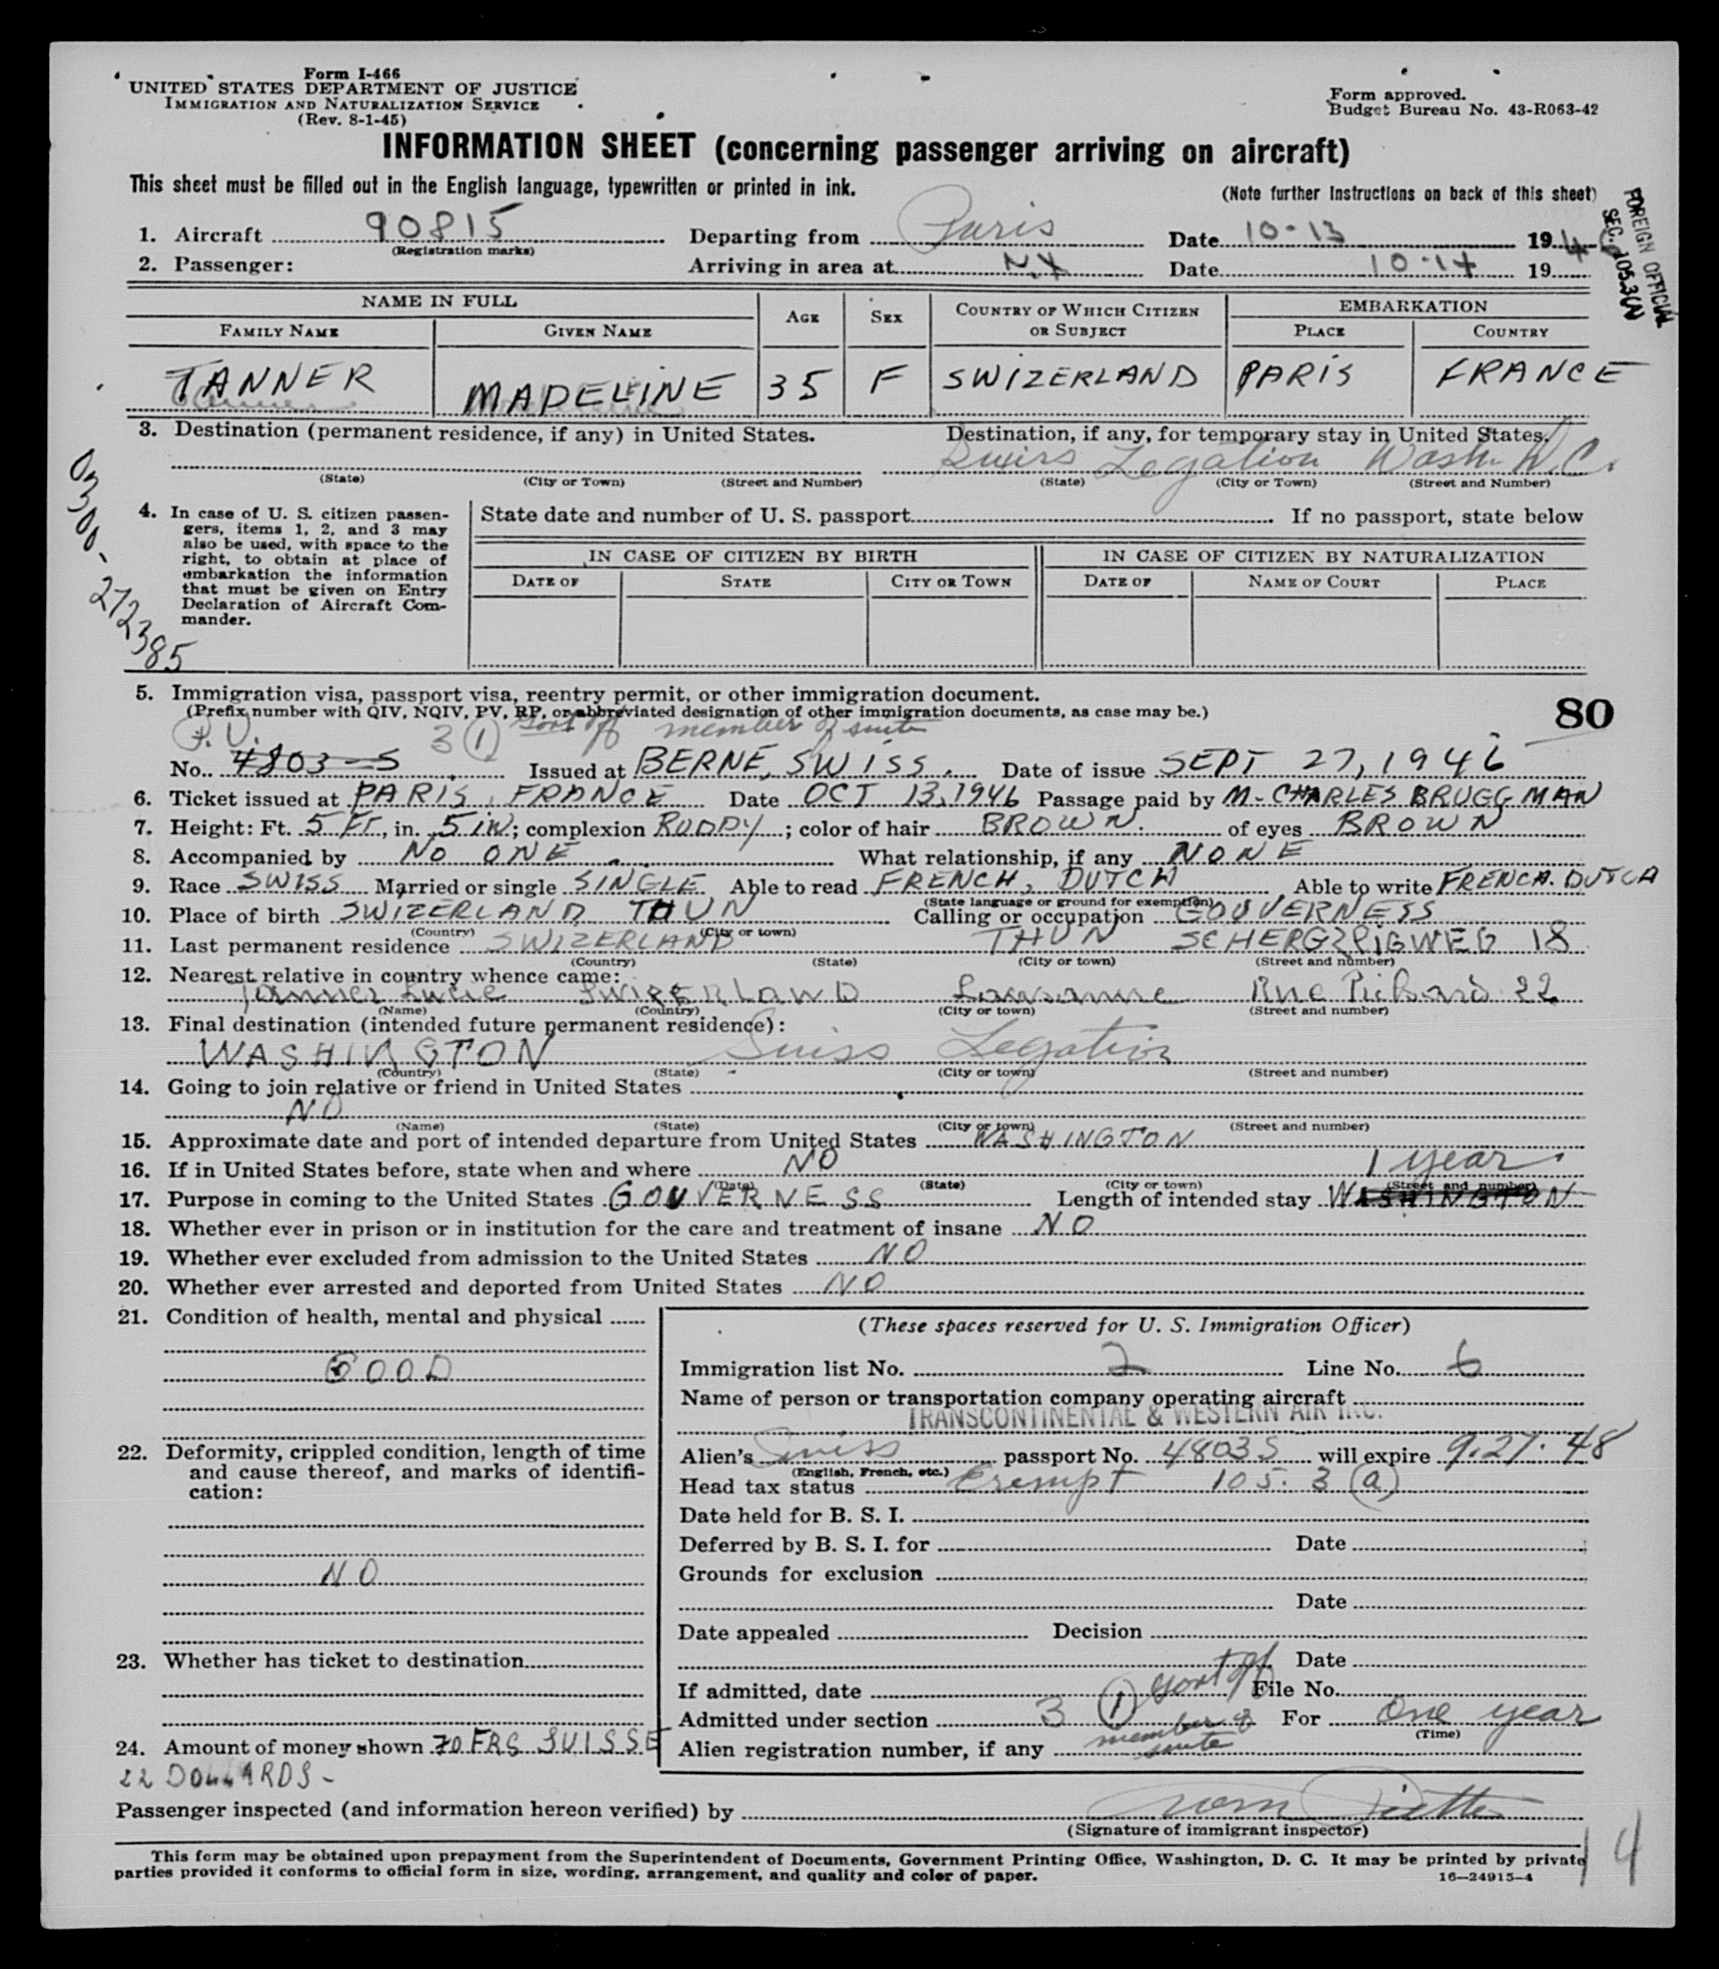 Form I-466
UNITED STATES DEPARTMENT OF JUSTICE
IMMIGRATION AND NATURALIZATION SERVICE
(Rev. 8-1-45)
Form approved.
Budget Bureau No. 43-R063-42
INFORMATION SHEET (concerning passenger arriving on aircraft)
This sheet must be filled out in the English language, typewritten or printed in ink.
(Note further instructions on back of this sheet)
FOREIGN OFFICIAL
SEC. 105.3(
1. Aircraft 90815 Departing from Paris Date 10-13 1946
(Registration marks)
2. Passenger: Arriving in area at N.Y. Date 10-14 19
NAME IN FULL AGE SEX COUNTRY OF WHICH CITIZEN OR SUBJECT EMBARKATION
FAMILY NAME GIVEN NAME PLACE COUNTRY
TANNER MADELINE 35 F SWIZERLAND PARIS FRANCE
3. Destination (permanent residence, if any) in United States. Destination, if any, for temporary stay in United States.
Swiss Legation Wash. D.C.
(State) (City or Town) (Street and Number) (State) (City or Town) (Street and Number)
0300-272385
4. In case of U. S. citizen passengers, items 1, 2, and 3 may also be used, with space to the right, to obtain at place of embarkation the information that must be given on Entry Declaration of Aircraft Commander.
State date and number of U. S. passport If no passport, state below
IN CASE OF CITIZEN BY BIRTH IN CASE OF CITIZEN BY NATURALIZATION
DATE OF STATE CITY OR TOWN DATE OF NAME OF COURT PLACE
5. Immigration visa, passport visa, reentry permit, or other immigration document.
(Prefix number with QIV, NQIV, PV, RP, or abbreviated designation of other immigration documents, as case may be.)
80
P.V. 3 (1) Govt off member of suite
No. 4803-S Issued at BERNE, SWISS. Date of issue SEPT 27, 1946
6. Ticket issued at PARIS, FRANCE Date OCT 13, 1946 Passage paid by M- CHARLES BRUGGMAN
7. Height: Ft. 5 FT., in. 5 IN; complexion RUDDY; color of hair BROWN. of eyes BROWN
8. Accompanied by NO ONE What relationship, if any NONE
9. Race SWISS Married or single SINGLE Able to read FRENCH, DUTCH Able to write FRENCH. DUTCH
(State language or ground for exemption)
10. Place of birth SWIZERLAND THUN Calling or occupation GOUVERNESS
(Country) (City or town)
11. Last permanent residence SWIZERLAND THUN SCHERGZLIGWEG 18
(Country) (State) (City or town) (Street and number)
12. Nearest relative in country whence came:
Tanner Lucie SWIZERLAND Lausanne Rue Pichard 22
(Name) (Country) (City or town) (Street and number)
13. Final destination (intended future permanent residence):
WASHINGTON Swiss Legation
(Country) (State) (City or town) (Street and number)
14. Going to join relative or friend in United States
NO
(Name) (State) (City or town) (Street and number)
15. Approximate date and port of intended departure from United States WASHINGTON
16. If in United States before, state when and where NO 1 year
(Date) (State) (City or town) (Street and number)
17. Purpose in coming to the United States GOUVERNESS Length of intended stay WASHINGTON
18. Whether ever in prison or in institution for the care and treatment of insane NO
19. Whether ever excluded from admission to the United States NO
20. Whether ever arrested and deported from United States NO
21. Condition of health, mental and physical
GOOD
22. Deformity, crippled condition, length of time and cause thereof, and marks of identification:
NO
23. Whether has ticket to destination
24. Amount of money shown 70 FRS SUISSE
22 DOLLARDS -
(These spaces reserved for U. S. Immigration Officer)
Immigration list No. 2 Line No. 6
Name of person or transportation company operating aircraft
TRANSCONTINENTAL & WESTERN AIR INC.
Alien's Swiss passport No. 4803S will expire 9.27.48
(English, French, etc.)
Head tax status Exempt 105.3 (a)
Date held for B. S. I.
Deferred by B. S. I. for Date
Grounds for exclusion
Date
Date appealed Decision
Date
If admitted, date Govt off File No.
Admitted under section 3 (1) member of suite For One year
(Time)
Alien registration number, if any
Passenger inspected (and information hereon verified) by
(Signature of immigrant inspector)
This form may be obtained upon prepayment from the Superintendent of Documents, Government Printing Office, Washington, D. C. It may be printed by private
parties provided it conforms to official form in size, wording, arrangement, and quality and color of paper.
16-24915-4
14